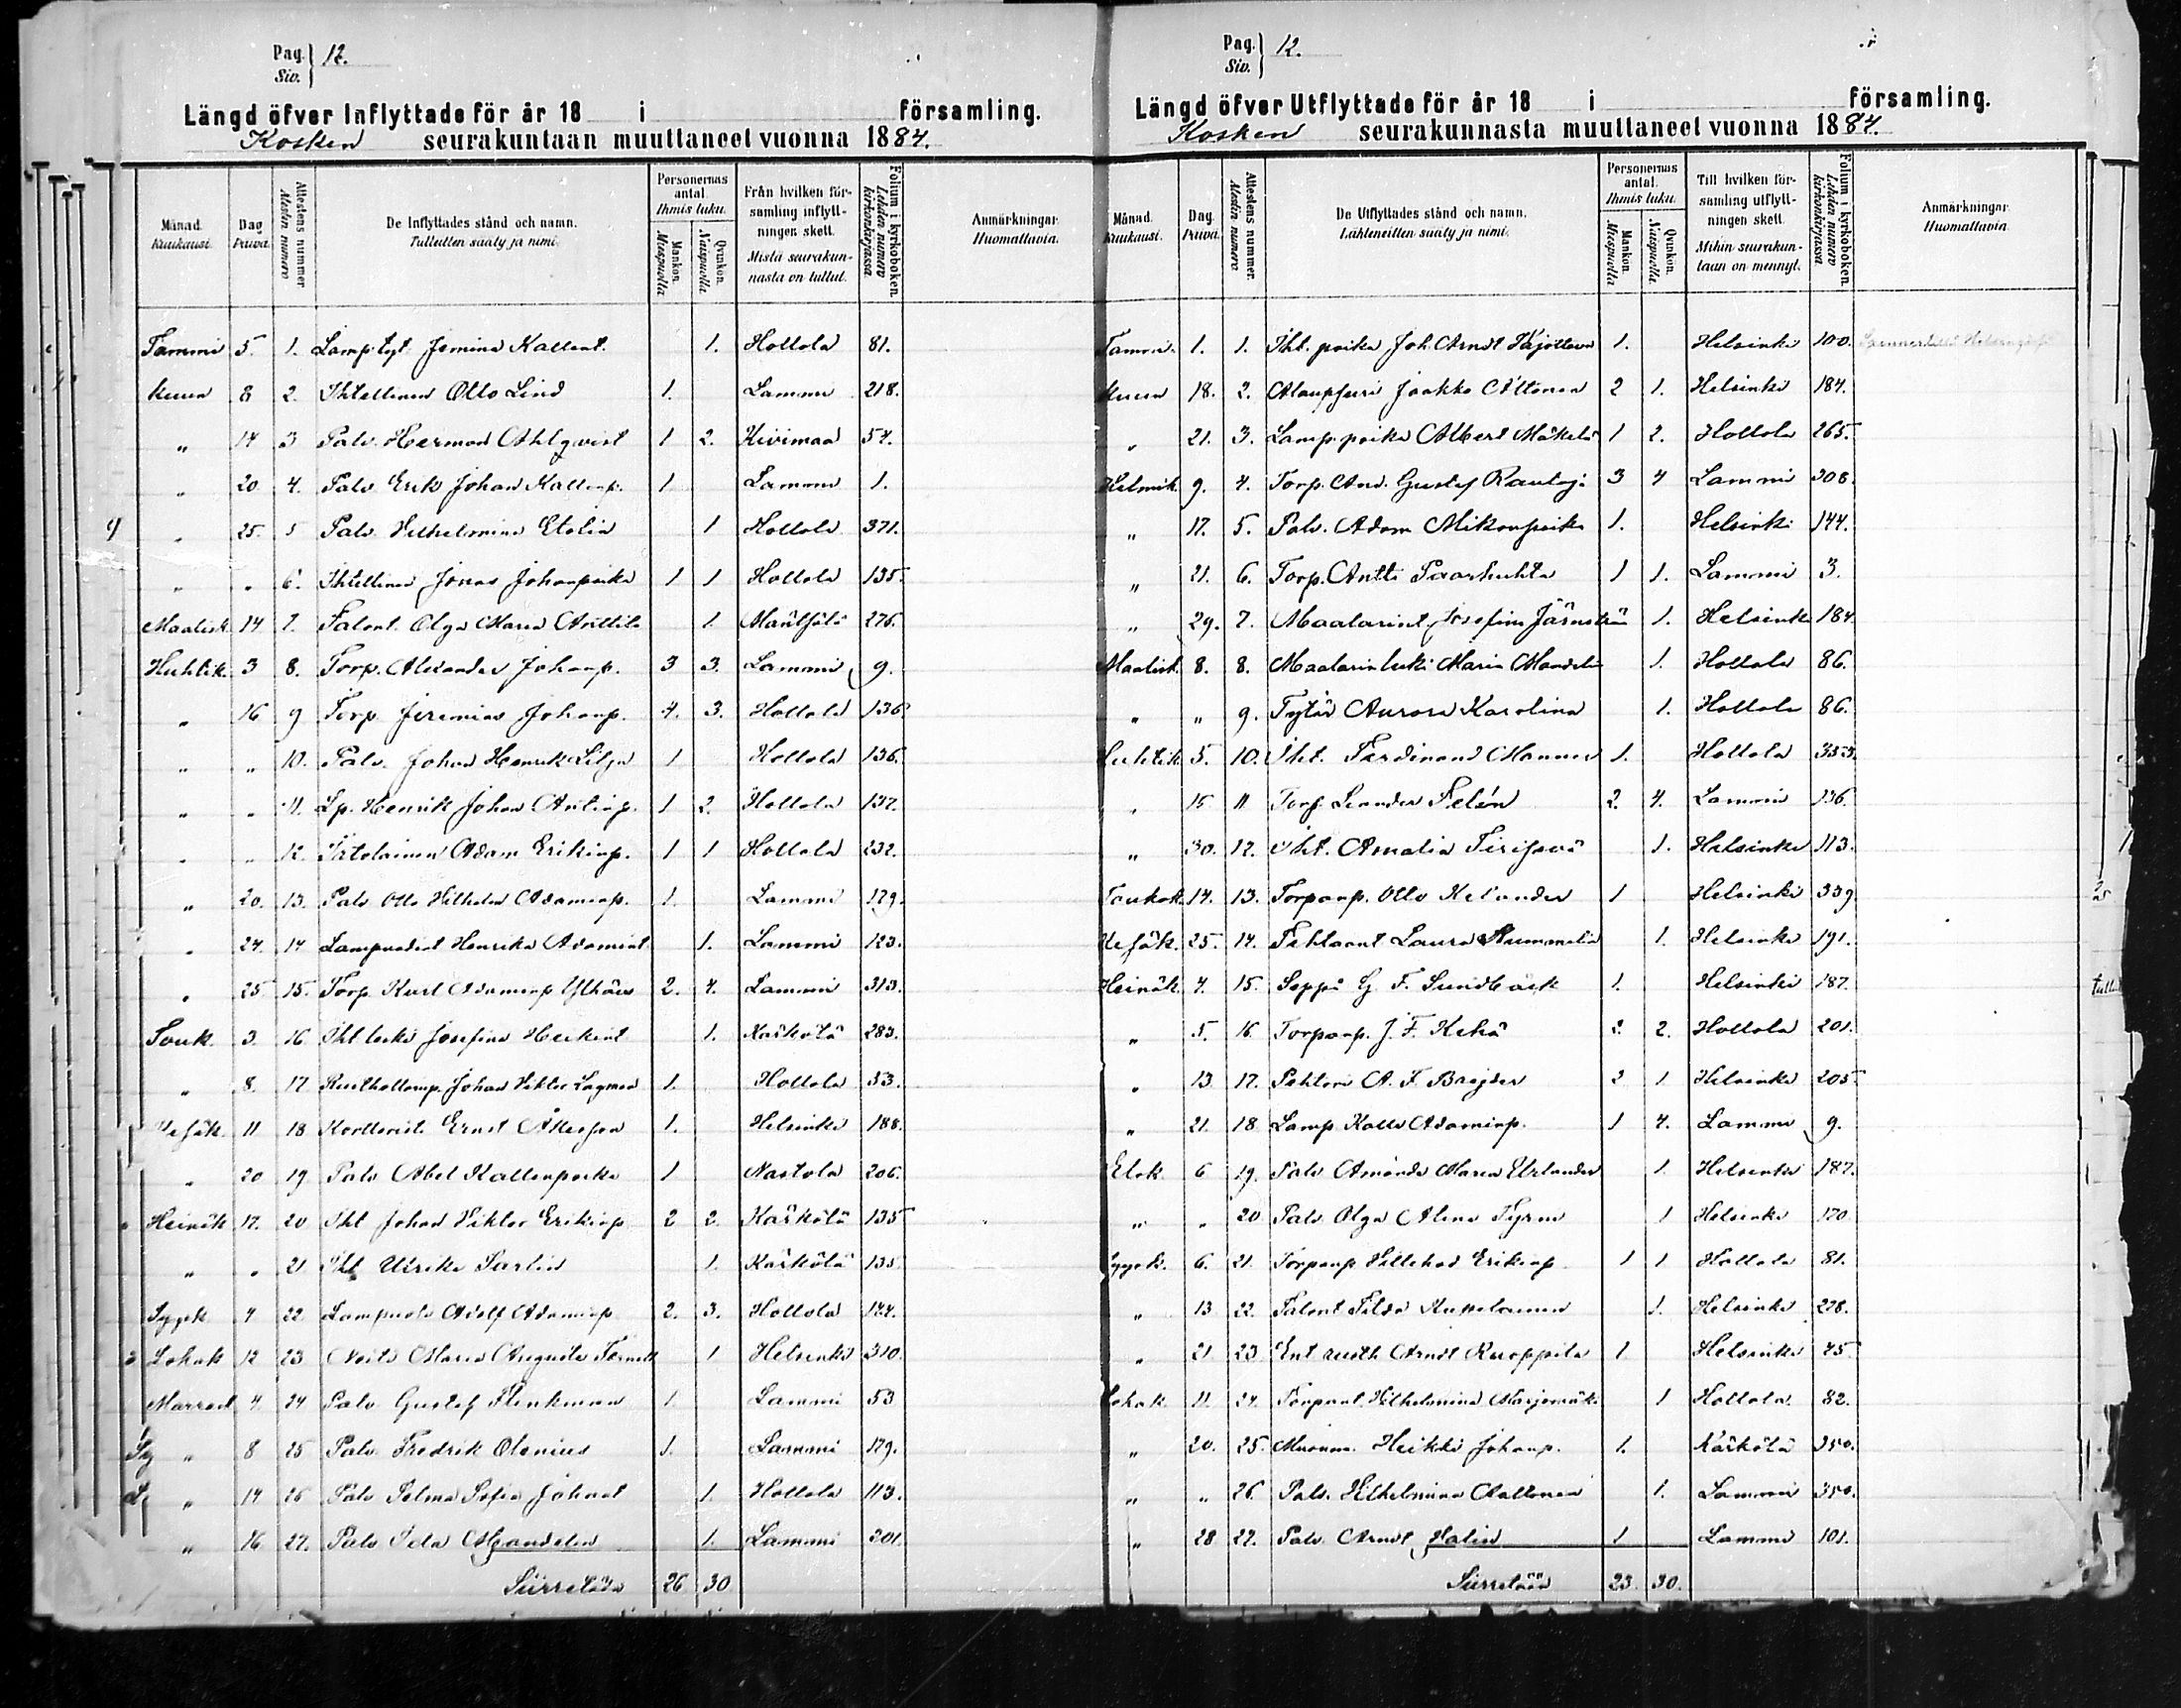 Pag. 12.
Siv.
Längd öfver Inflyttade för år 18 i församling.
Kosken seurakuntaan muuttaneet vuonna 1884.
Månad. Kuukausi. Dag. Päivä. Attestens nummer Alestin numero De Inflyttades stånd och namn. Tulleitten sääty ja nimi. Personernas antal. Ihmis luku. Mankön. Miespuolia Qvinkön. Naispuolia Från hvilken församling inflyttningen skett. Mistä seurakunnasta on tullut. Folium i kyrkoboken. Lehden numero kirkonkirjassa Anmärkningar. Huomattavia.
Tammi 5. 1. Lamp. tyt. Jemina Kallent. 1. Hollola 81.
kuun 8 2. Ihtellinen Otto Lind 1. Lammi 218.
„ 14 3 Palv. Herman Ahlqvist 1 2. Kivimaa 54.
„ 20 4. Palv Erik Johan Kallenp. 1 Lammi 1.
„ 25. 5 Palv Vilhelmina Etolin 1 Hollola 371.
„ „ 6. Ihtellinen Jonas Johanpoika 1 1 Hollola 135.
Maalisk. 14 7. Talont. Olga Maria Anttila 1. 276.
Huhtik. 3 8. Torp. Alexander Johanp. 3 3. Lammi 9.
„ 16 9 Torp. Jeremias Johanp. 4. 3. Hollola 136
„ „ 10. Palv. Johan Henrik Lilja 1 Hollola 136.
„ „ 11. Lp. Henrik Johan Antinp. 1 2. Hollola 137.
„ „ 12. Itetolainen Adam Erikinp. 1 1 Hollola 232.
„ 20. 13. Palv Otto Vilhelm Adaminp. 1. Lammi 179.
„ 24. 14 Henrika Adamint. 1. Lammi 123.
„ 25 15. Torp Karl Adaminp 2. 4. Lammi 313.
Touk. 3. 16 Iht. leski Josefina Heikint 1. Kärkölä 283.
„ 8. 17 Rusthollarinp. Johan Viktor Lagman 1. Hollola 53.
Kesäk. 11 18 Ernst Åkesson 1. Helsinki 188.
„ 20 19 Palv Abel Kallenpoika 1 Nastola 206.
Heinäk 17. 20 Iht Johan Viktor Erikinp 2 2. Kärkölä 135
„ „ 21 Iht Ulrika Sarlin 1. Kärkölä 135
Syysk 4 22 Adolf Adaminp 2. 3. Hollola 144.
Lokak 12 23 Neito Maria Augusta 1 Helsinki 310.
Marrask 4. 24 Palv Gustaf Flinkman 1. Lammi 53
„ 8 25 Palv Fredrik Olenius 1. Lammi 179.
„ 14 26 Palv Selma Sofia Johant 1. Hollola 113.
„ 16 27. Palv Ida Mandelin 1. Lammi 301.
Siirretään 26 30
Pag. 12.
Siv.
Längd öfver Utflyttade för år 18 i församling.
Kosken seurakunnasta muuttaneet vuonna 1884.
Månad. Kuukausi. Dag. Päivä. Attestens nummer. Alestin numero De Utflyttades stånd och namn. Lähteneitten sääty ja nimi. Personernas antal. Ihmis luku. Mankön. Miespuolia Qvinkön. Naispuolia Till hvilken församling utflyttningen skett. Mihin seurakuntaan on mennyt. Folium i kyrkoboken. Lehden numero kirkonkirjassa Anmärkningar. Huomattavia.
Tammi. 1. 1. Iht. poika Joh. Arndt 1. Helsinki 100.
kuun 18. 2. Jaakko Altonen 2 1. Helsinki 184.
„ 21. 3. Lamp. poika Albert Mäkelä 1 2. Hollola 265.
Helmik. 9. 4. Torp. And. Gustaf 3 4 Lammi 308.
„ 17. 5. Palv. Adam Mikonpoika 1. Helsinki 144.
„ 21. 6. Torp. Antti Paarhuhta 1 1. Lammi 3.
„ 29. 7. Maalarint. Josefina 1. Helsinki 184
Maalisk. 8. 8. Maalarin leski Maria Mandelin 1. Hollola 86.
„ „ 9. Tytär Aurora Karolina 1. Hollola 86.
Huhtik. 5. 10. Iht. Ferdinand Manner 1. Hollola 353.
„ 15 11 Torp. Leander Felén 2. 4. Lammi 136.
„ 30. 12. Iht. Amalia 1. Helsinki 113.
Toukok. 14. 13. Torparip. Otto Kelander 1 Helsinki 339
Kesäk. 25. 14. Laura 1. Helsinki 191.
Heinäk. 4. 15. Seppä G. F. Sundbäck 1. Helsinki 187.
„ 5. 16. Torparip. J. F. Kehä 2 2. Hollola 201.
„ 13 17. A. F. 2 1. Helsinki 205
„ 21. 18 Lamp Kalle Adaminp. 1 4. Lammi 9.
Elok. 6 19. Palv Amanda Maria 1. Helsinki 187.
„ „ 20 Palv Olga Alina 1 Helsinki 170
Syysk. 6. 21. Torparip Villehad Erikinp 1 1 Hollola 81.
„ 13 22. Talont Hilda 1. Helsinki 278.
„ 21 23 Ent. rusth. Arndt Ruoppila 1. Helsinki 45
Lokak. 11. 24. Torparit. Vilhelmina Marjamäki 1 Hollola 82.
„ 20. 25. Heikki Johanp. 1. Kärkölä 350.
„ „ 26. Palv. Vilhelmina Aaltonen 1. Lammi 350.
„ 28 27. Palv Arndt Halin 1 Lammi 101.
Siirretään 23. 30.